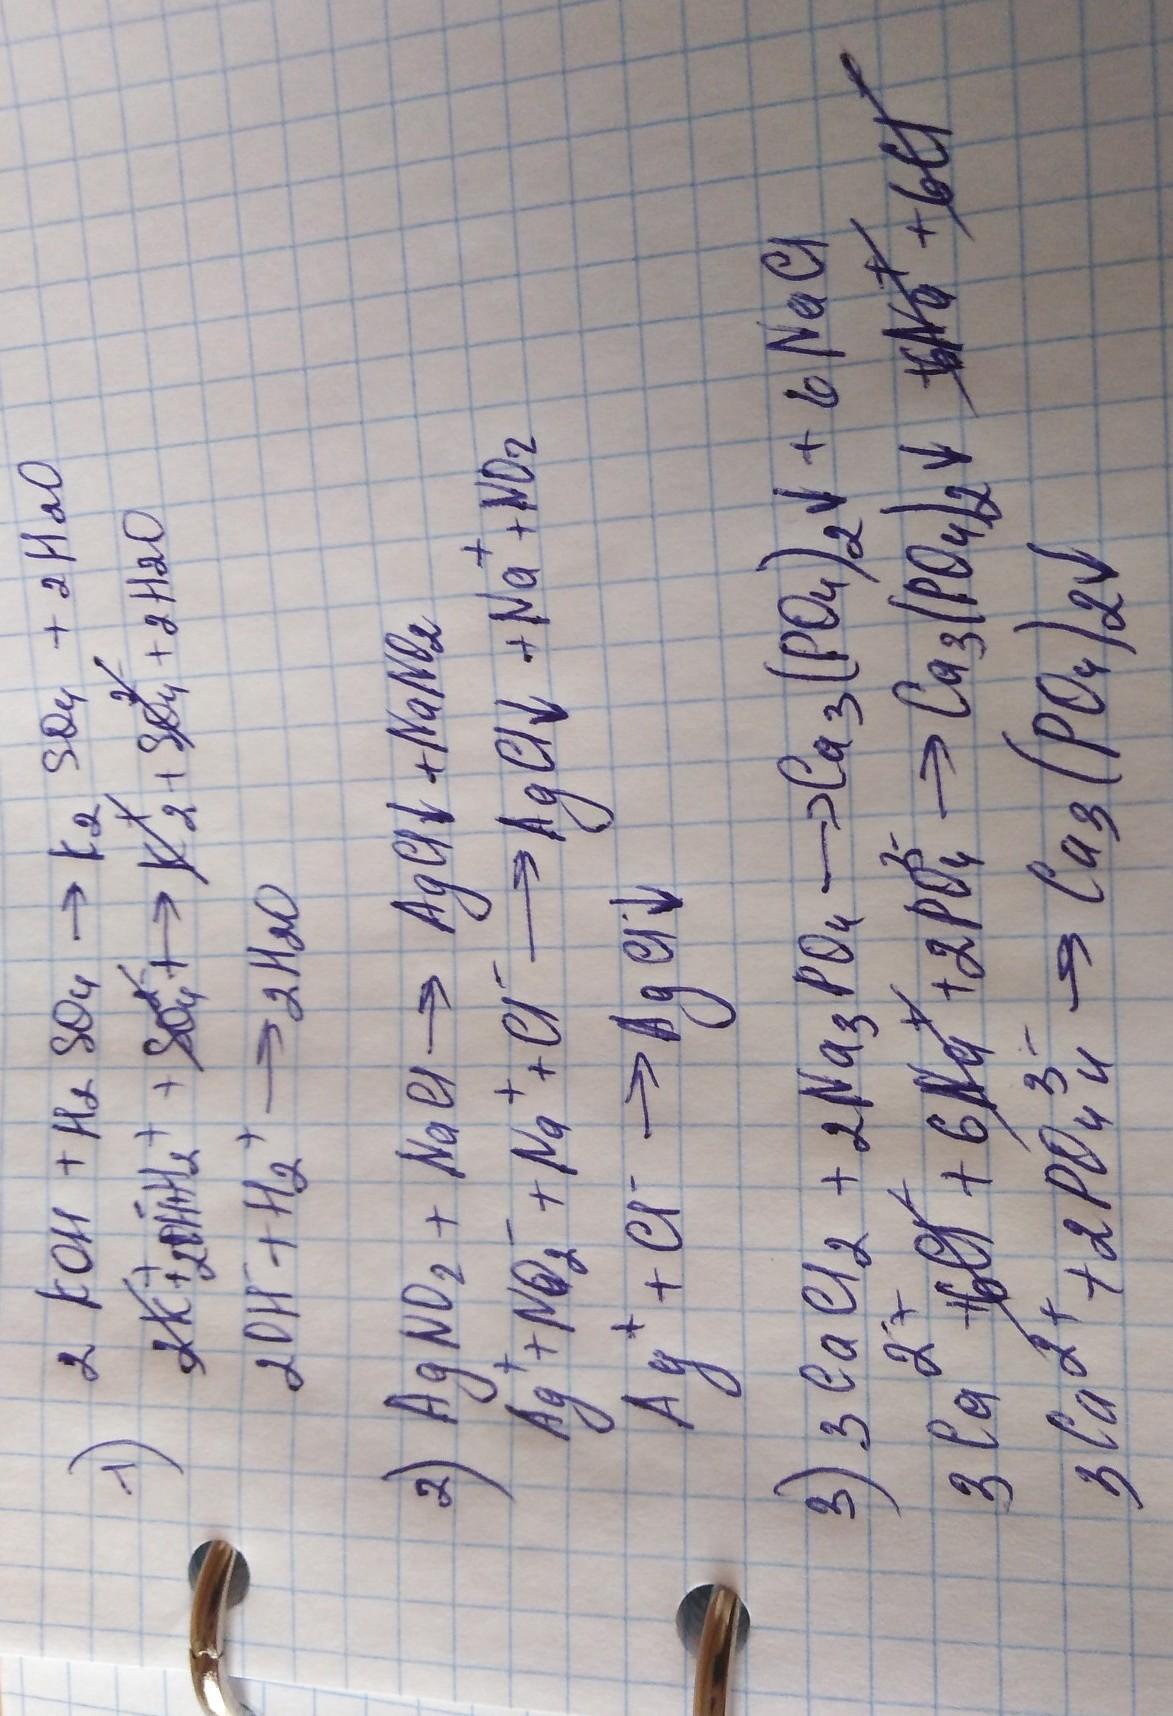 1) 2 KOH + H2 SO4 → K2 SO4 + 2H2O
2K⁺ + 2OH⁻ + H2⁺ + SO4²⁻ → K2⁺ + SO4²⁻ + 2H2O
2OH⁻ + H2⁺ → 2H2O
2) AgNO2 + NaCl → AgCl↓ + NaNO2
Ag⁺ + NO2⁻ + Na⁺ + Cl⁻ → AgCl↓ + Na⁺ + NO2
Ag⁺ + Cl⁻ → AgCl↓
3) 3CaCl2 + 2Na3PO4 → Ca3(PO4)2↓ + 6NaCl
3Ca²⁺ + 6Cl⁻ + 6Na⁺ + 2PO4³⁻ → Ca3(PO4)2↓ + 6Na⁺ + 6Cl⁻
3Ca²⁺ + 2PO4³⁻ → Ca3(PO4)2↓